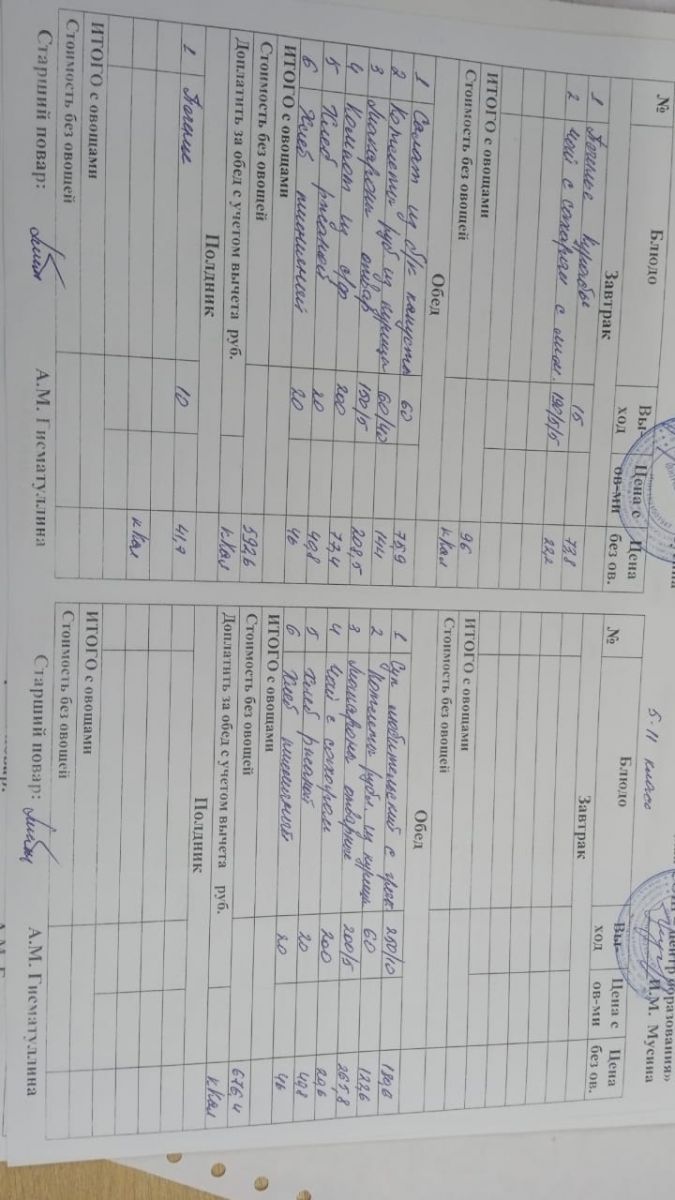 № Блюдо Вы-ход Цена с ов-ми Цена без ов.
Завтрак
1 Печенье курабье 15 73,8
2 Чай с сахаром с лим. 190/5/5 22,2
ИТОГО с овощами 96
Стоимость без овощей кКал
Обед
1 Салат из б/к капусты 60 75,9
2 Котлеты руб из курицы 60/40 144
3 Макароны отвар 150/5 208,5
4 Компот из с/ф 200 77,4
5 Хлеб ржаной 20 40,8
6 Хлеб пшеничный 20 46
ИТОГО с овощами
Стоимость без овощей 592,6
Доплатить за обед с учетом вычета руб. кКал
Полдник
1 Печенье 10 41,7
кКал
ИТОГО с овощами
Стоимость без овощей
Старший повар: А.М. Гисматуллина
образования»
5-11 класс И.М. Мусина
№ Блюдо Вы-ход Цена с ов-ми Цена без ов.
Завтрак
ИТОГО с овощами
Стоимость без овощей
Обед
1 Суп любительский с 250/10
2 Котлеты рубл. из курицы 60 122,6
3 Макароны отварные 200/5 265,8
4 Чай с сахаром 200 20,6
5 Хлеб ржаной 20 40,8
6 Хлеб пшеничный 20 46
ИТОГО с овощами
Стоимость без овощей 676,4
Доплатить за обед с учетом вычета руб. кКал
Полдник
ИТОГО с овощами
Стоимость без овощей
Старший повар: А.М. Гисматуллина